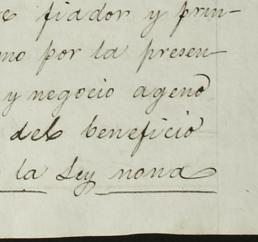 e fiador y prin-
mo por la presen-
y negocio ageno
del beneficio
la Ley nona